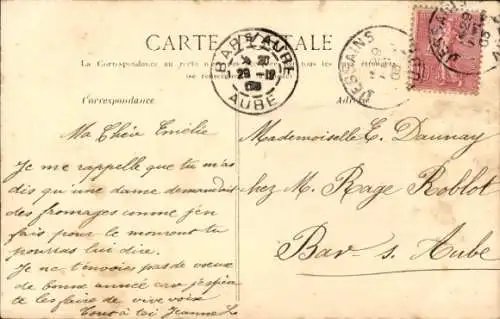 CARTE POSTALE
La Correspondance au recto n'est pas
Correspondance
Adresse
BAR S/AUBE
29-12
08
AUBE
JESSAINS
JESSAINS
Ma Chère Emélie
Je me rappelle que tu m'as
dis qu'une dame demandait
des fromages comme j'en
fais pour le moment tu
pourras lui dire.
Je ne t'envoies pas de vœux
de bonne année car j'espère
te les faire de vive voix
Tout à toi Jeanne L
Mademoiselle E. Daunay
chez M. Rage Roblot
Bar s. Aube